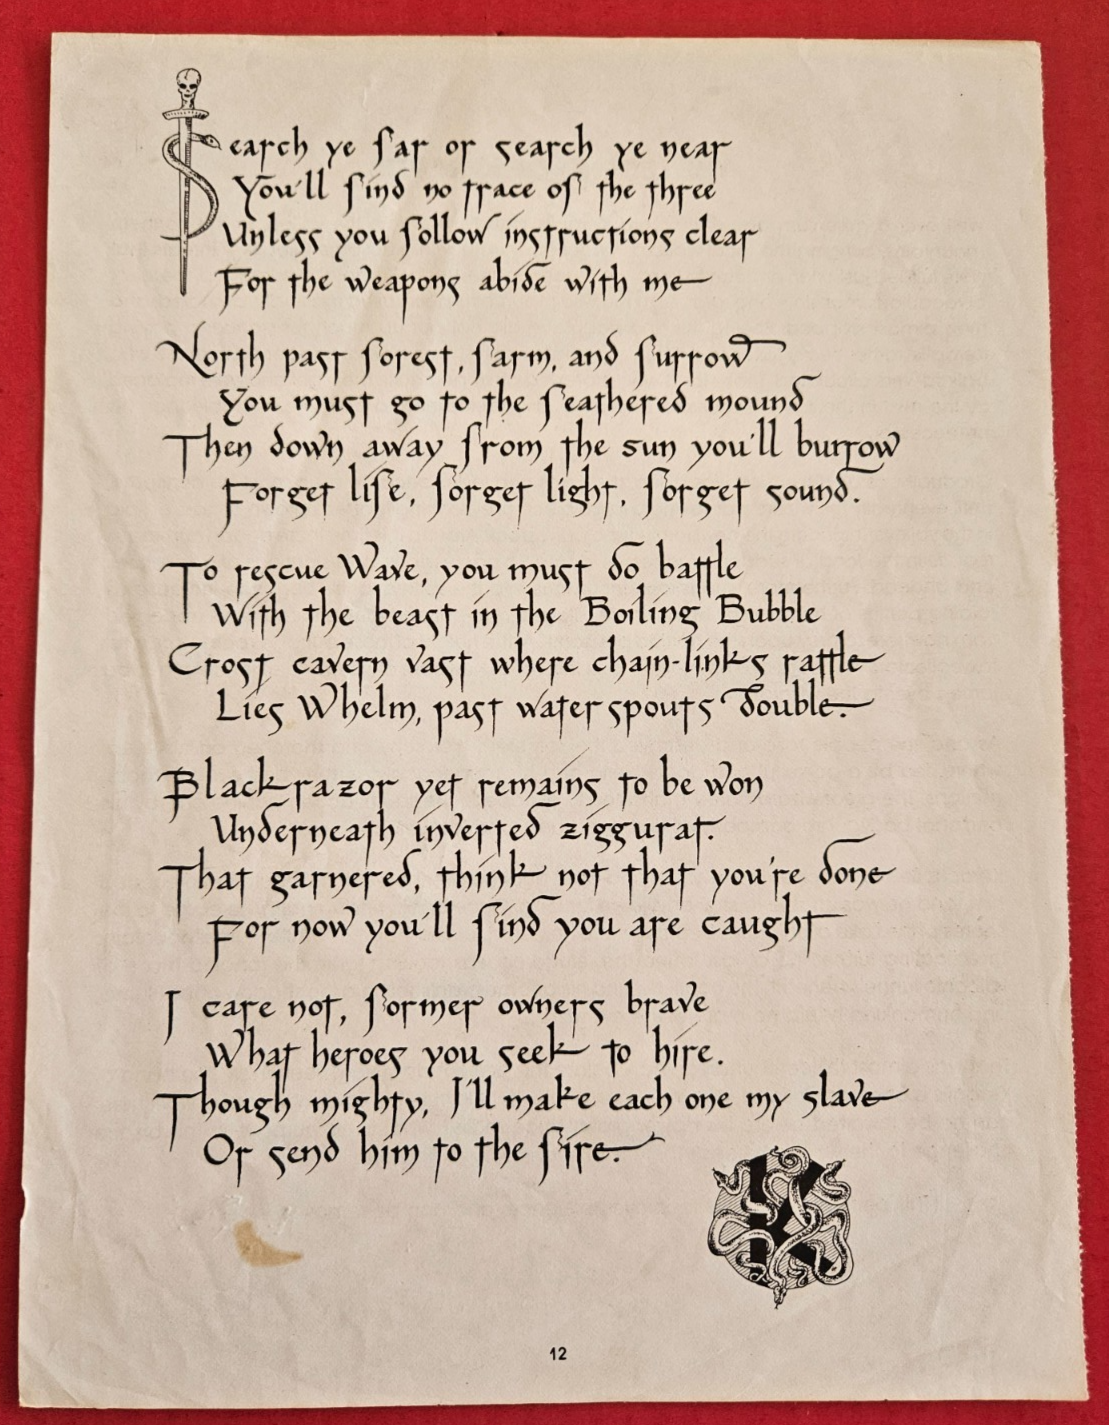 Search ye far or search ye near
You'll find no trace of the three
Unless you follow instructions clear
For the weapons abide with me
North past forest, farm, and furrow
You must go to the feathered mound
Then down away from the sun you'll burrow
Forget life, forget light, forget sound.
To rescue Wave, you must do battle
With the beast in the Boiling Bubble
Crost cavern vast where chain-links rattle
Lies Whelm, past waterspouts double.
Blackrazor yet remains to be won
Underneath inverted ziggurat.
That garnered, think not that you're done
For now you'll find you are caught
I care not, former owners brave
What heroes you seek to hire.
Though mighty, I'll make each one my slave
Or send him to the fire.
K
12